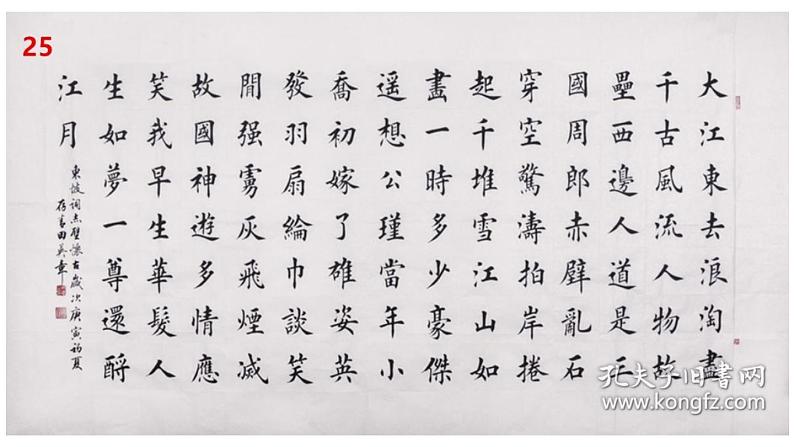 25
大江東去浪淘盡
千古風流人物故
壘西邊人道是三
國周郎赤壁亂石
穿空驚濤拍岸捲
起千堆雪江山如
畫一時多少豪傑
遥想公瑾當年小
喬初嫁了雄姿英
發羽扇綸巾談笑
閒强虜灰飛煙滅
故國神遊多情應
笑我早生華髮人
生如夢一尊還酹
江月
東坡詞赤壁懷古歲次庚寅初夏
存青田英章
孔夫子旧書网
www.kongfz.com